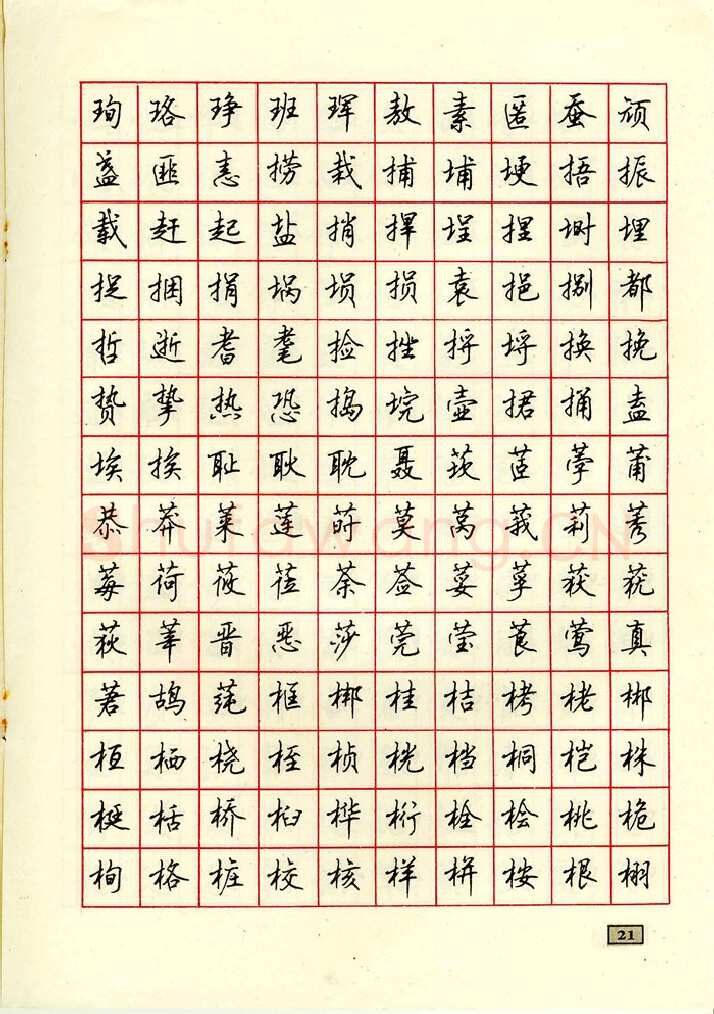 珣珞琤班珲敖素匿蚕顽
盏匪恚捞栽捕埔埂捂振
载赶起盐捎捍埕捏埘埋
捉捆捐埚埙损袁挹捌都
哲逝耆耄捡挫捋埒换挽
贽挚热恐捣垸壶捃捅盍
埃挨耻耿耽聂莰茝荸莆
恭莽莱莲莳莫莴莪莉莠
莓荷莜莅荼莶莩荻
荻莘晋恶莎莞莹莨莺真
著鸪莼框梆桂桔栲栳郴
桓栖桡桎桢桄档桐桤株
梃栝桥桕桦桁栓桧桃桅
栒格桩校核样栟桉根栩
21